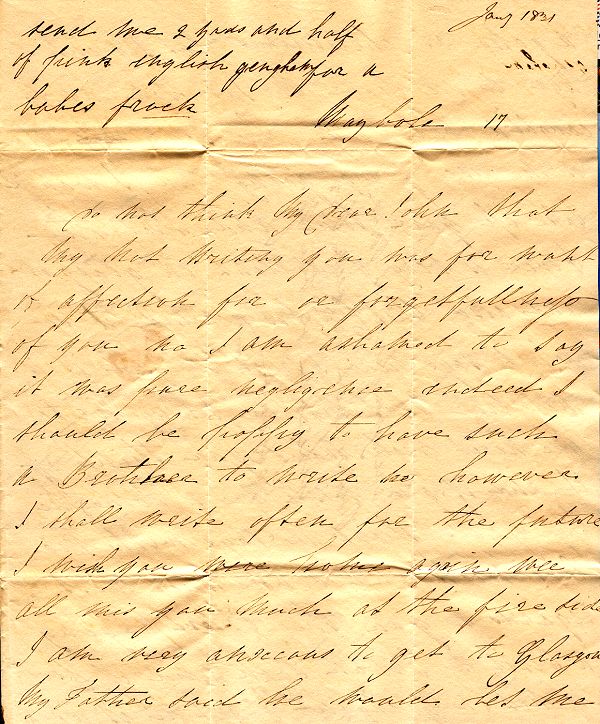 send me 2 yards and half
of pink english gengham for a
babes frock
Jany 1831
Maybole 17
Do not think My Dear John that
My Not Writing you was for want
of affection for or forgetfullness
of you no I am ashamed to say
it was pure negligence indeed I
should be happy to have such
a Brother to write to however
I shall write often for the future
I wish you were home again wee
all mis you Much at the fire side
I am very anxious to get to Glasgow
My Father said he would let me